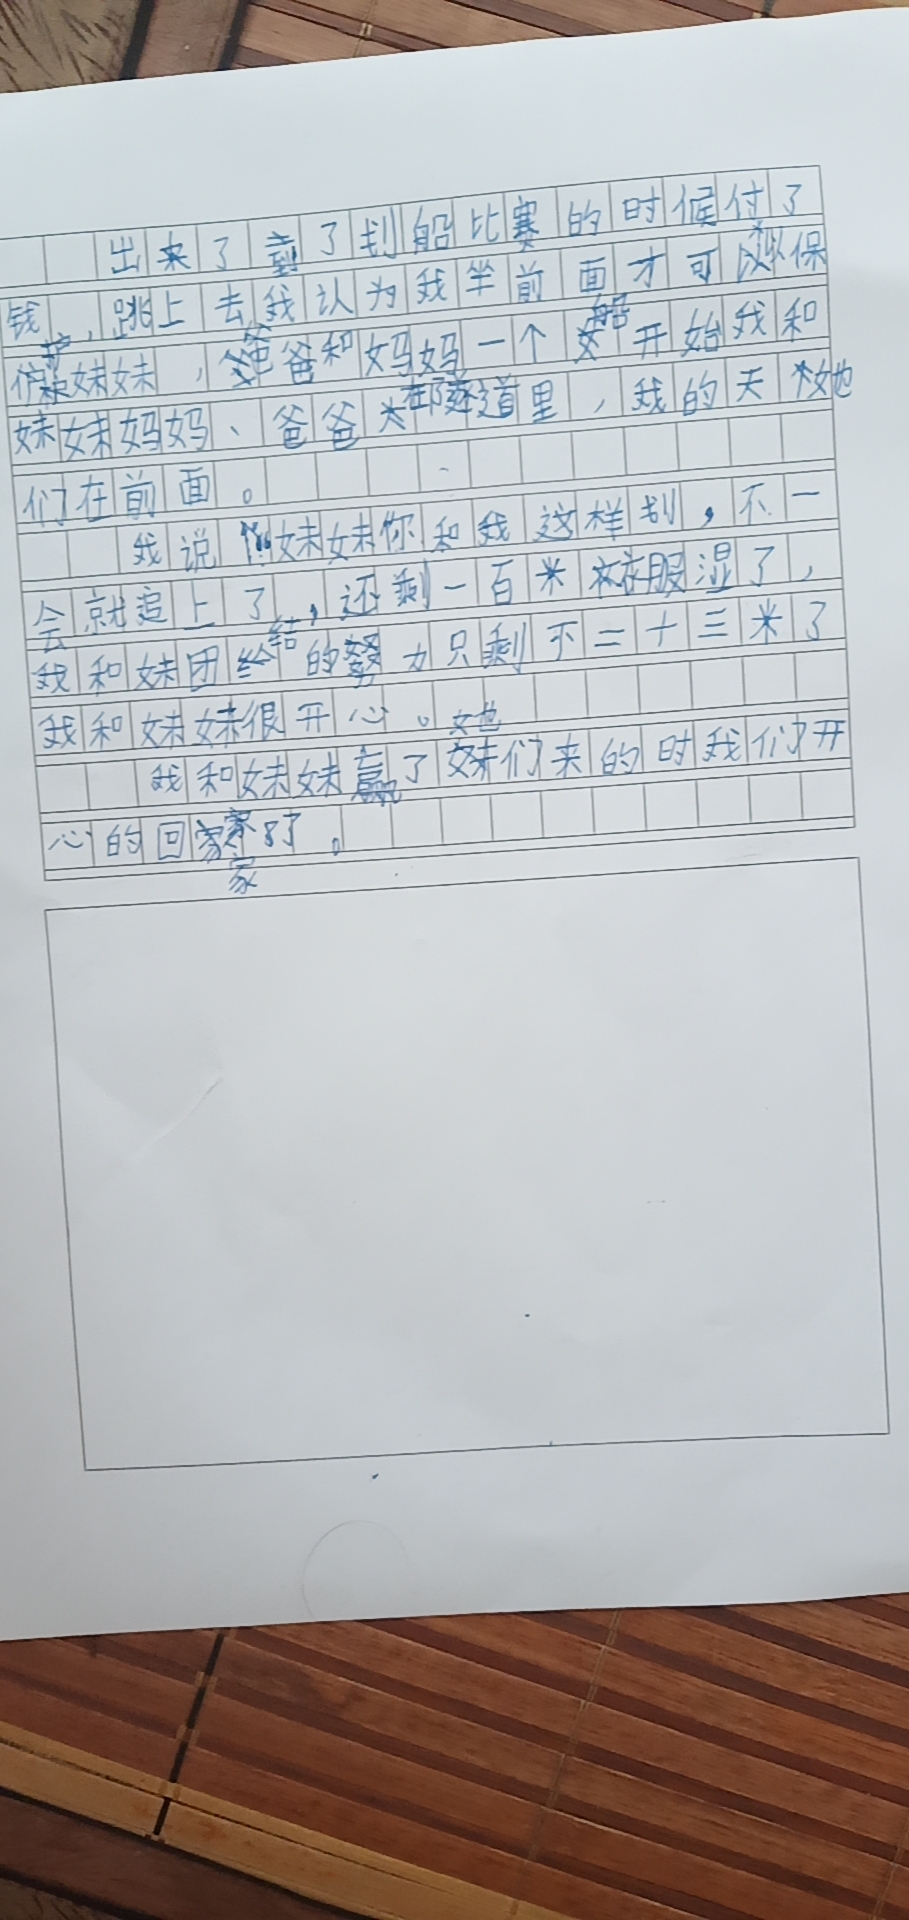 出来了到了划船比赛的时候付了
钱,跳上去我认为我坐前面才可以保
护妹妹,爸爸和妈妈一个船开始我和
妹妹妈妈、爸爸都逐道里,我的天她
们在前面。
我说“妹妹你和我这样划,不一
会就追上了,还剩一百米衣服湿了,
我和妹团结的努力只剩下二十三米了
我和妹妹很开心。
我和妹妹赢了她们来的时我们开
心的回家了。